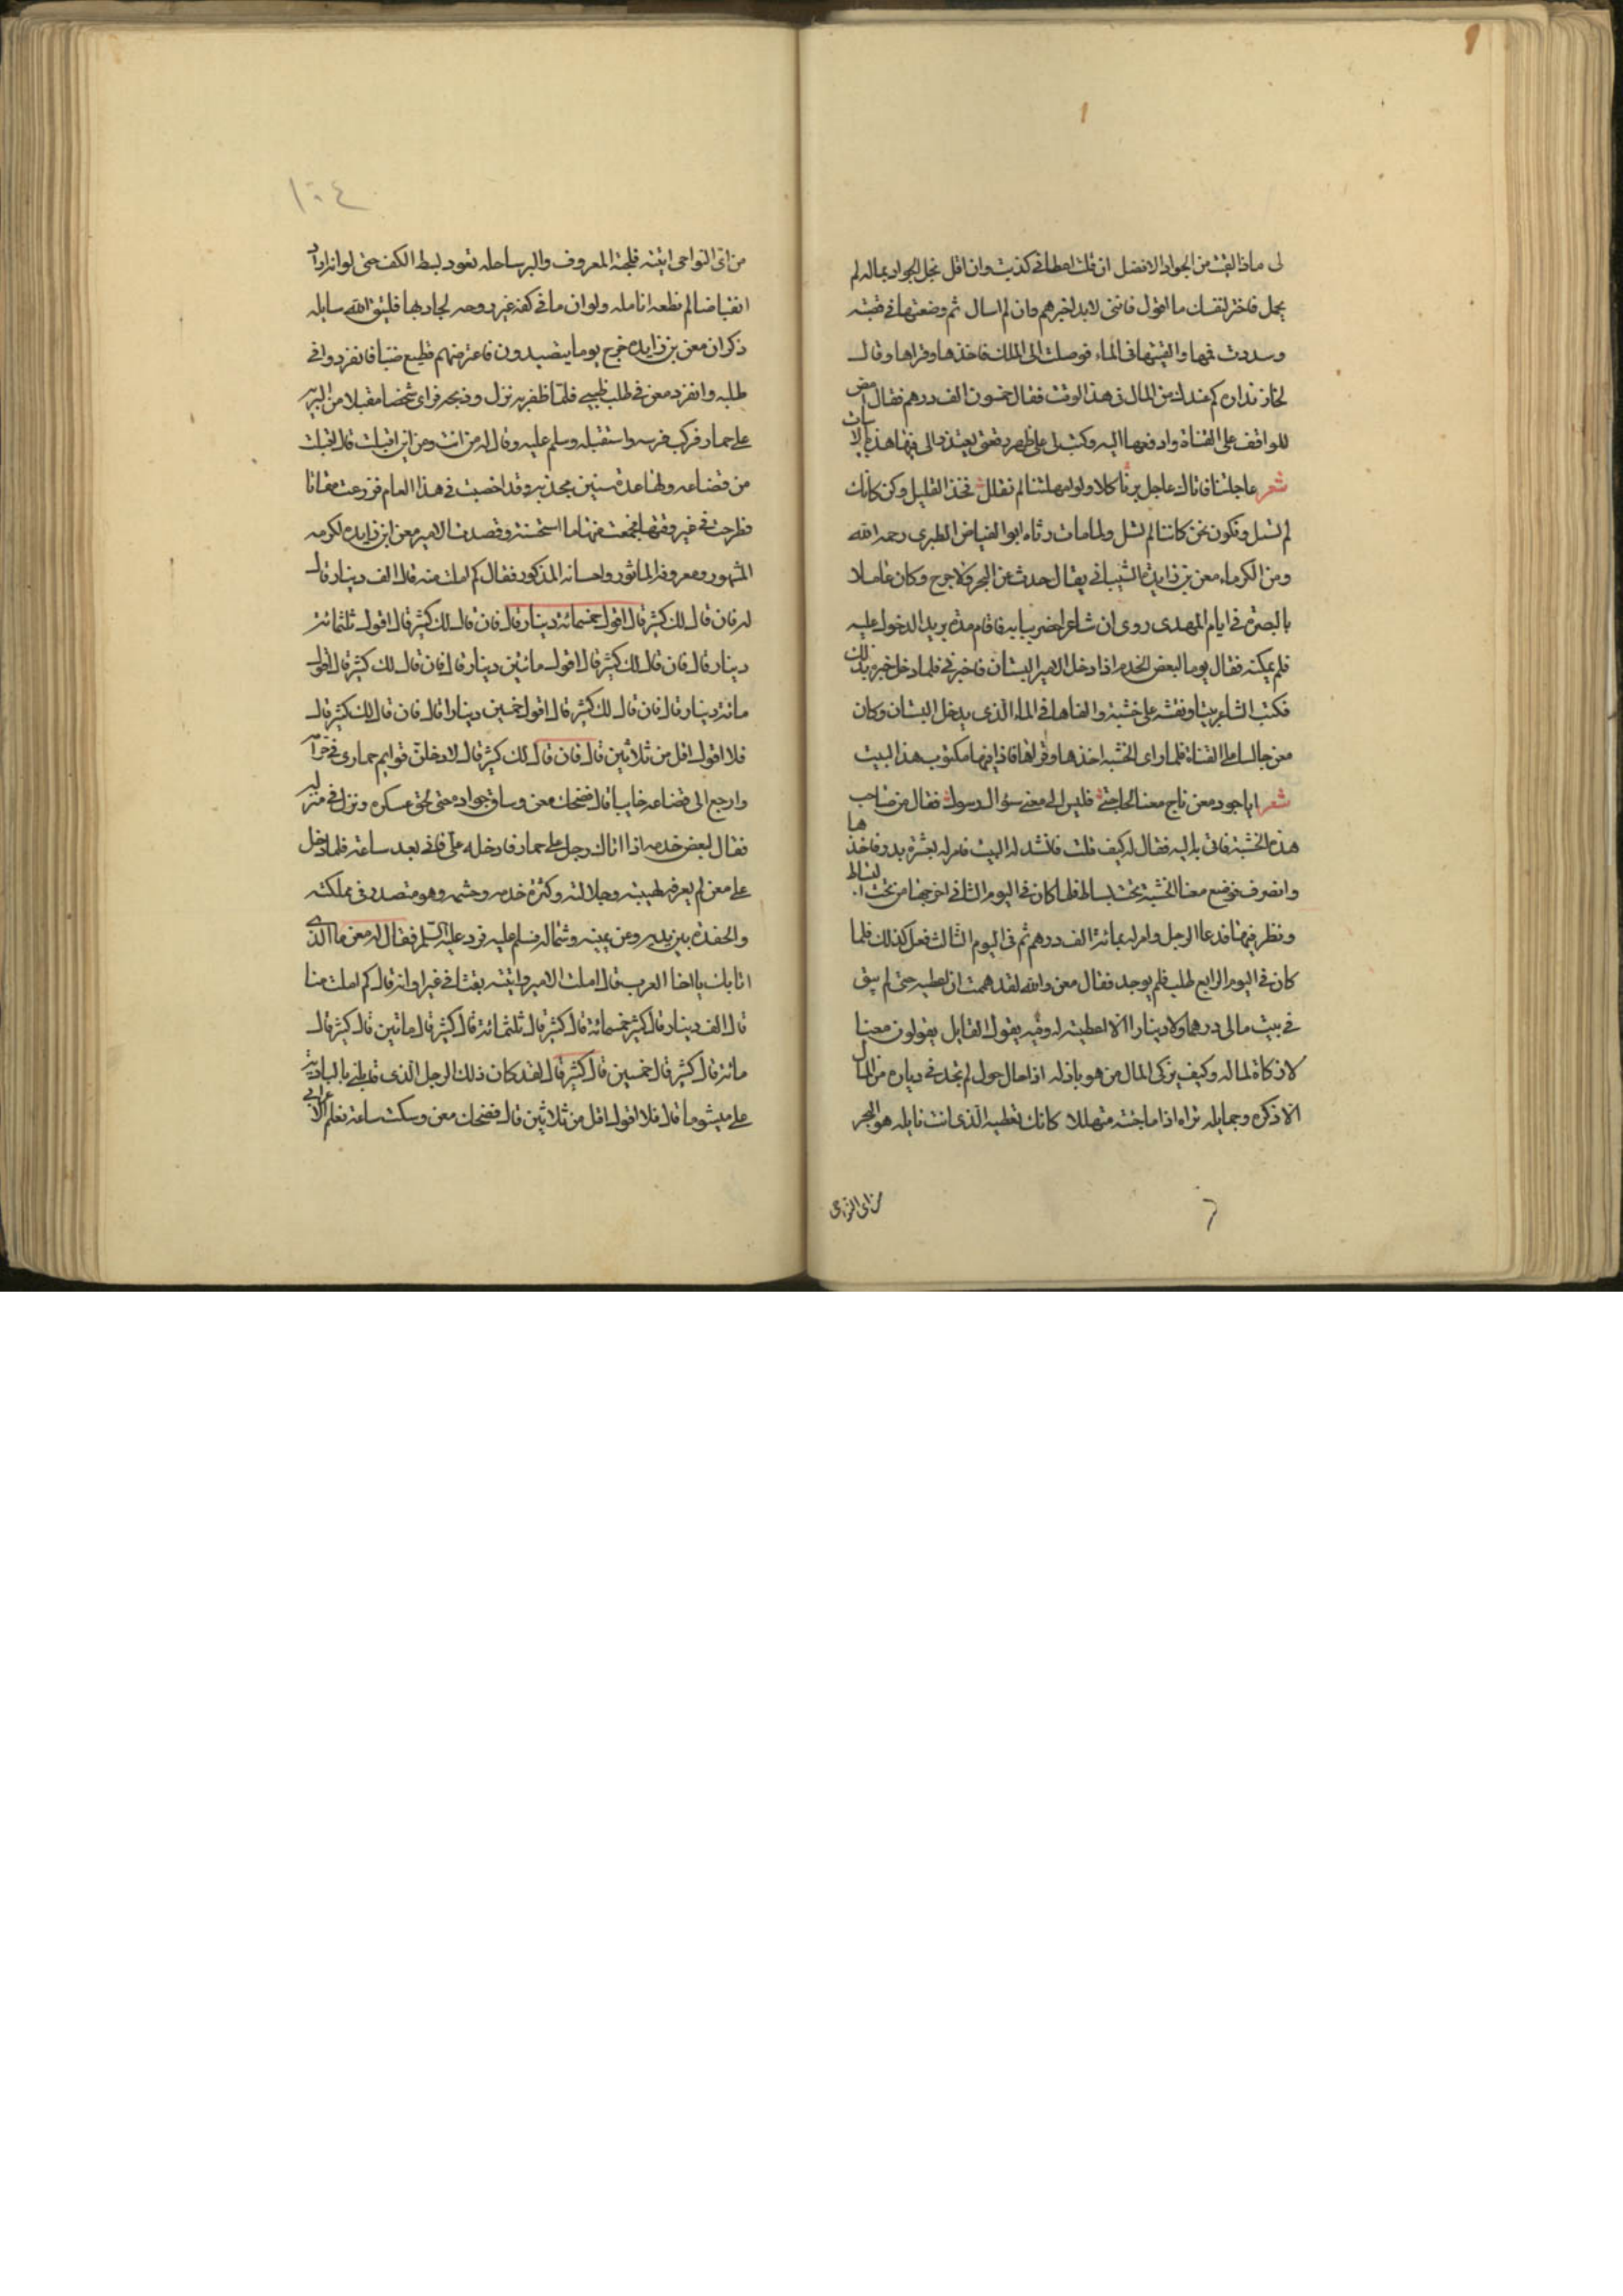 لى ماذا لقيت من الجواد الافضل ان قلت اعطانى كذبت وان اقل بخل الجواد بماله لم
يجمل فاختر لنفسك ما اقول فاننى لابد اخبرهم وان لم اسال ثم وضعتها فى قصبه
وسددت فمها والقيتها فى الماء فوصلت الى الملك فاخذها وقراها وقال
لخازنداره كم عندك من المال فى هذا الوقت فقال خمسون الف درهم فقال امض
للواقف على القناة وادفعها اليه وكتب على ظهر رقعتى يعتذر الى فيها هذه الابيات
شعر عاجلتنا فاتاك عاجل برنا كلا ولو امهلتنا لم نقلل فخذ القليل وكن كانك
لم تسل ونكون نحن كاننا لم نسل ولما مات رثاه ابو الفياض الطبرى رحمه الله
ومن الكرماء معن بن زايدة الشيبانى يقال حدث عن البحر ولا حرج وكان عاملا
بالبصرة فى ايام المهدى روى ان شاعرا حضر ببابه فاقام مدة يريد الدخول عليه
فلم يمكنه فقال يوما لبعض الخدم اذا دخل الامير البستان فاخبرنى فلما دخل خبره بذلك
فكتب الشاعر بيتا ونقشه على خشبة والقاها فى الماء الذى يدخل البستان وكان
معن جالسا على القناة فلما راى الخشبه اخذها وقراها فاذا فيها مكتوب هذا البيت
شعر ايا جود معن ناج معنا لحاجتى فليس الى معن سؤال رسول فقال من صاحب
هذه الخشبة فاتى به اليه فقال له كيف قلت فانشد له البيت فامر له بعشرة بدر فاخذها
وانصرف فوضع معنا الخشبة تحت بساط فلما كان فى اليوم الثانى اخرجها من تحت البساط
ونظر فيها فدعا الرجل وامر له بمائة الف درهم ثم فى اليوم الثالث فعل كذلك فلما
كان فى اليوم الرابع طلب فلم يوجد فقال معن والله لقد هممت ان اعطيه حتى لم يبق
فى بيت مالى درهما ولا دينارا الا اعطيته له وفيه يقول القايل يقولون معنا
لا زكاة لماله وكيف يزكى المال من هو باذله اذا حال حول لم تجد فى دياره من المال
الا ذكره وجمايله تراه اذا ما جئته متهللا كانك تعطيه الذى انت نايله هو البحر
من اى النواحى
٦
١٠٤
من اى النواحى اتيته فلجته المعروف والبر ساحله تعود بسط الكف حتى لو انه اراد
انقباضا لم تطعه انامله ولو ان ما فى كفه غير روحه لجاد بها فليتق الله سايله
ذكر ان معن بن زايده خرج يوما يتصيدون فاعترضهم قطيع ضبا فانفردوا فى
طلبه وانفرد معن فى طلب ظبى فلما ظفر به نزل وذبحه فراى شخصا مقبلا من البريه
على حمار فركب فرسه واستقبله وسلم عليه وقال له من انت ومن اين اقبلت قال اقبلت
من قضاعه ولها عدة سنين مجدبه وقد اخصبت فى هذا العام فزرعت مقاثا
وطرحت فى غير وقتها فجمعت منها ما استحسنته وقصدت الامير معن ابن زايده لكرمه
المشهور ومعروفه الماثور واحسانه المذكور فقال كم املت منه قال الف دينار قال
له فان قال لك كثير قال اقول خمسمائة دينار قال فان قال لك كثير قال اقول ثلثمائة
دينار قال فان قال لك كثير قال اقول مائتين دينار قال فان قال لك كثير قال اقول
مائة دينار قال فان قال لك كثير قال اقول خمسين دينارا قال فان قال لك كثير قال
فلا اقول اقل من ثلاثين قال فان قال لك كثير قال لادخلن قوايم حمارى فى حرامه
وارجع الى قضاعه خايبا قال فضحك معن وساق جواده حتى لحق عسكره ونزل فى منزله
فقال لبعض خدمه اذا اتاك رجل على حمار فادخله على فاتى بعد ساعة فلما دخل
على معن لم يعرفه لهيبته وجلالته وكثرة خدمه وحشمه وهو متصدر فى مملكته
والحفدة بين يديه وعن يمينه وشماله فسلم عليه فرد عليه السلم فقال له معن ما الذى
اتا بك يا اخا العرب قال املت الامير واتيته بقثا فى غير اوانه قال كم املت منا
قال الف دينار قال كثير خمسمائة قال كثير قال ثلثمائة قال كثير قال مائتين قال كثير قال
مائة قال كثير قال خمسين قال كثير قال لقد كان ذلك الرجل الذى قابلنى بالبادية
على ميشوما قال فلا اقول اقل من ثلاثين قال فضحك معن وسكت ساعة فعلم الاعرابى